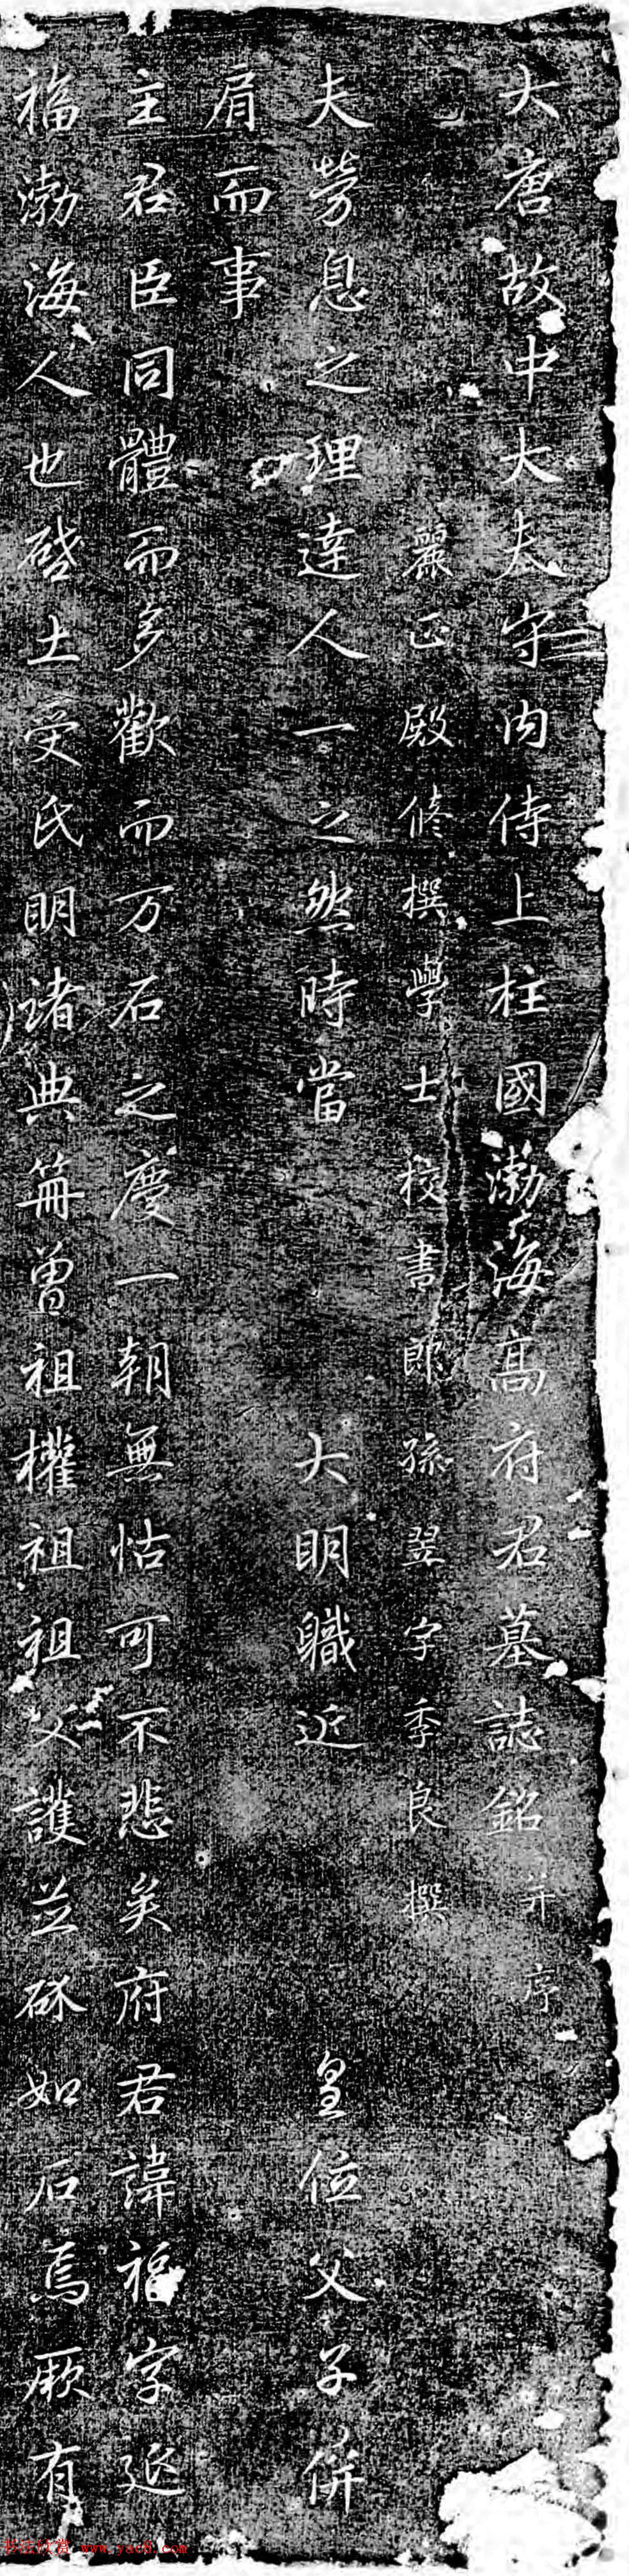 大唐故中大夫守内侍上柱國渤海高府君墓誌銘并序
麗正殿修撰學士校書郎孫翌字季良撰
夫勞息之理達人一之然時當大明職近皇位父子併
肩而事
主君臣同體而多歡而万石之慶一朝無怙可不悲矣府君諱福字延
福渤海人也啓土受氏明諸典冊曾祖權祖祖父護並砅如石焉厥有
书法欣赏 www.yac8.com